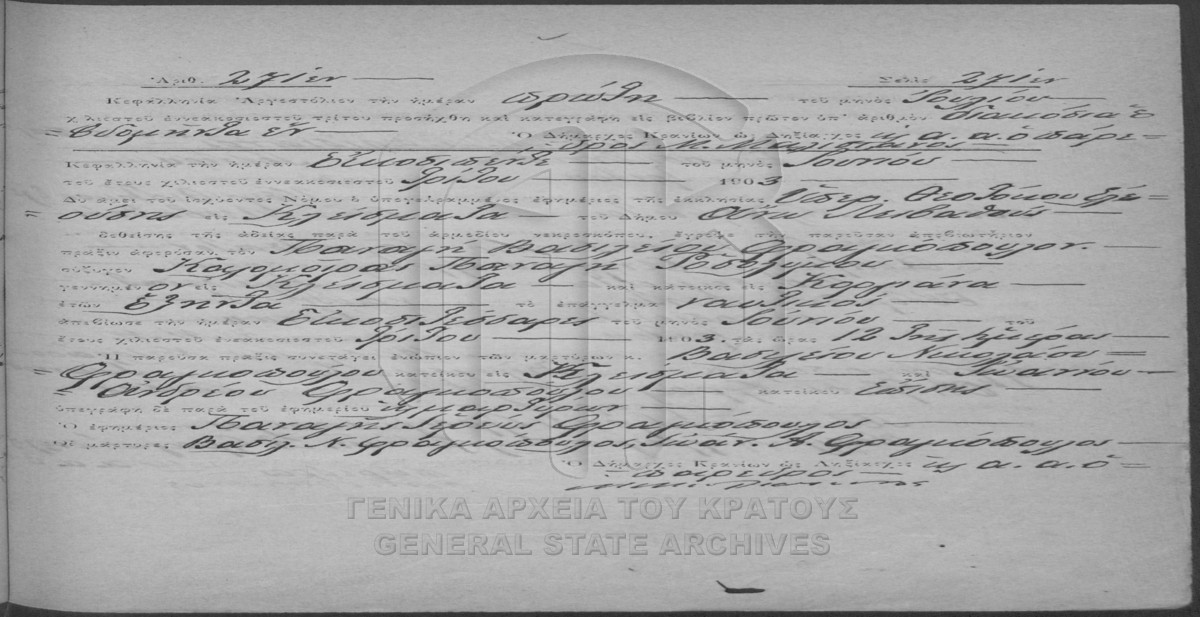 Ἀριθ. 271 ἑν Σελὶς 271 ἑν
Κεφαλληνία Ἀργοστόλιον τὴν ἡμέραν πρώτη τοῦ μηνὸς Ἰουλίου
χιλιοστοῦ ἐννεακοσιοστοῦ τρίτου προσήχθη καὶ κατεγράφη εἰς βιβλίον πρῶτον ὑπ' ἀριθμὸν διακόσια ἑ
=βδομῆντα ἑν Ὁ Δήμαρχος Κρανίων ὡς Ληξίαρχος κ. α. α. ὁ πάρε=
δρος Μ.
Κεφαλληνία τὴν ἡμέραν εἴκοσι πέντε τοῦ μηνὸς Ἰουνίου
τοῦ ἔτους χιλιοστοῦ ἐννεακοσιοστοῦ τρίτου 1903
Δυνάμει τοῦ ἰσχύοντος Νόμου ὁ ὑπογεγραμμένος ἐφημέριος τῆς ἐκκλησίας Ὑπερ. Θεοτόκου
εἰς Κλείσματα τοῦ Δήμου Λειβαθοῦς
δοθείσης τῆς ἀδείας παρὰ τοῦ ἁρμοδίου νεκροσκόπου, ἔγραψε τὴν παροῦσαν ἀποβιωτήριον
πρᾶξιν ἀφορῶσαν τὸν Παναγῆ Βασιλείου Φραγκόπουλον.
σύζυγον Παναγῆ
γεννημένον εἰς Κλείσματα καὶ κάτοικος εἰς Κοργιάνα
ἐτῶν ἑξῆντα τὸ ἐπάγγελμα ναυτικὸς
ἀπεβίωσε τὴν ἡμέραν εἴκοσι τέσσαρες τοῦ μηνὸς Ἰουνίου τοῦ
ἔτους χιλιοστοῦ ἐννεακοσιοστοῦ τρίτου 1903. τὰς ὥρας 12 τῆς ἡμέρας
Ἡ παροῦσα πρᾶξις συνετάγει ἐνώπιον τῶν μαρτύρων κ. Βασιλείου Νικολάου=
=Φραγκοπούλου κατοίκου εἰς Κλείσματα καὶ Ἰωάννου
=Ἀνδρέου Φραγκοπούλου κατοίκου ἐπίσης
ὑπεγράφη δὲ παρὰ τοῦ ἐφημερίου κ. μαρτύρων
Ὁ ἐφημέριος Παναγῆς Ἱερεὺς Φραγκόπουλος
Οἱ μάρτυρες Βασιλ. Ν. Φραγκόπουλος. Ἰωάν. Α. Φραγκόπουλος
Ὁ Δήμαρχος Κρανίων ὡς Ληξίαρχος κ. α. α. ὁ=
=πάρεδρος
ΓΕΝΙΚΑ ΑΡΧΕΙΑ ΤΟΥ ΚΡΑΤΟΥΣ
GENERAL STATE ARCHIVES